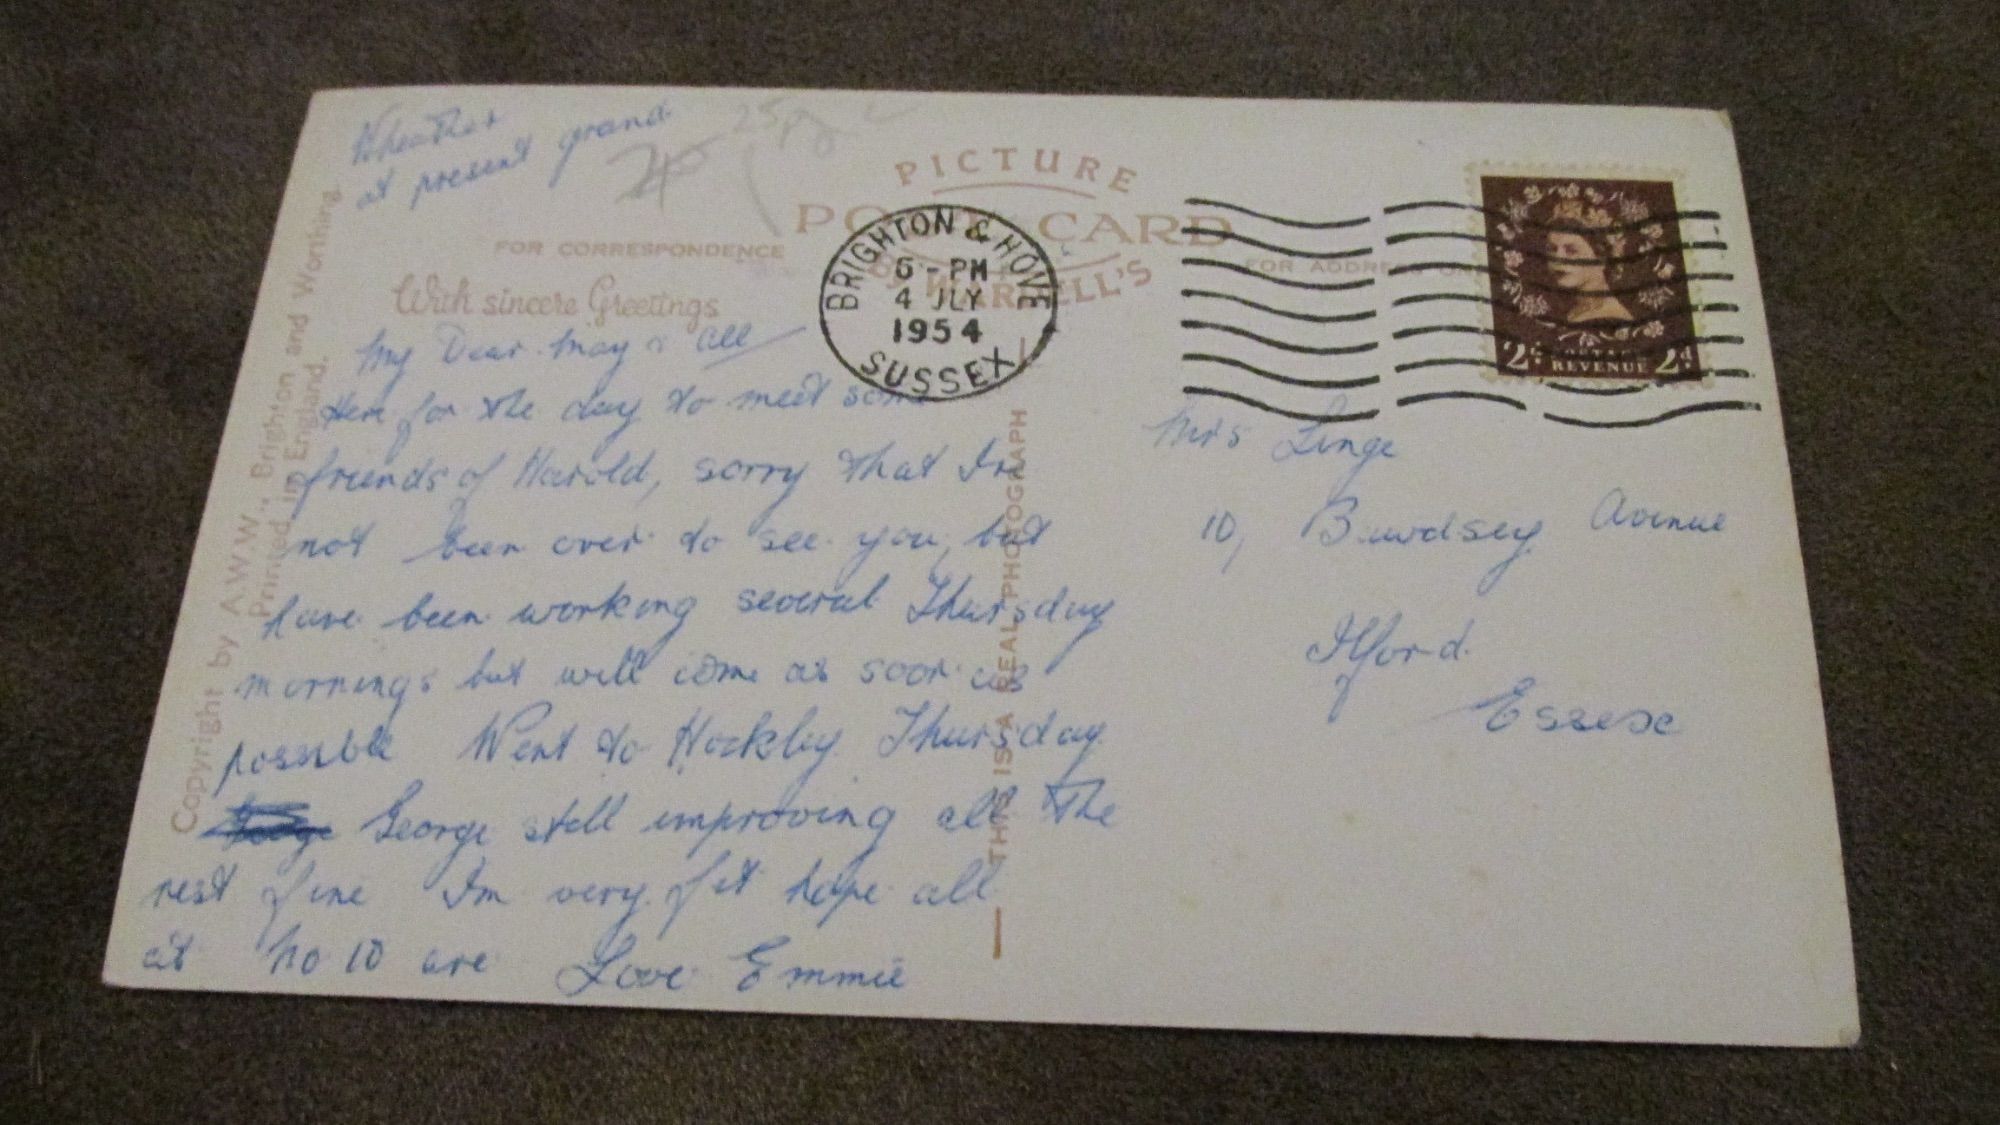 Wheather
at present grand.
25p
PICTURE
POST CARD
BY WARDELL'S
FOR CORRESPONDENCE
FOR ADDRESS ONLY
With sincere Greetings
BRIGHTON & HOVE
6 - PM
4 JLY
1954
SUSSEX
2D REVENUE 2D
My Dear May & all
Here for the day to meet some
friends of Harold, sorry that Ive
not been over to see you, but
have been working several Thursday
mornings but will come as soon as
possible Went to Hockley Thursday
George still improving all the
rest fine Im very fit hope all
at No 10 are Love Emmie
Mrs Linge
10, Bawdsey Avenue
Ilford.
Essex
Copyright by A.W.W., Brighton and Worthing.
Printed in England.
THIS IS A REAL PHOTOGRAPH